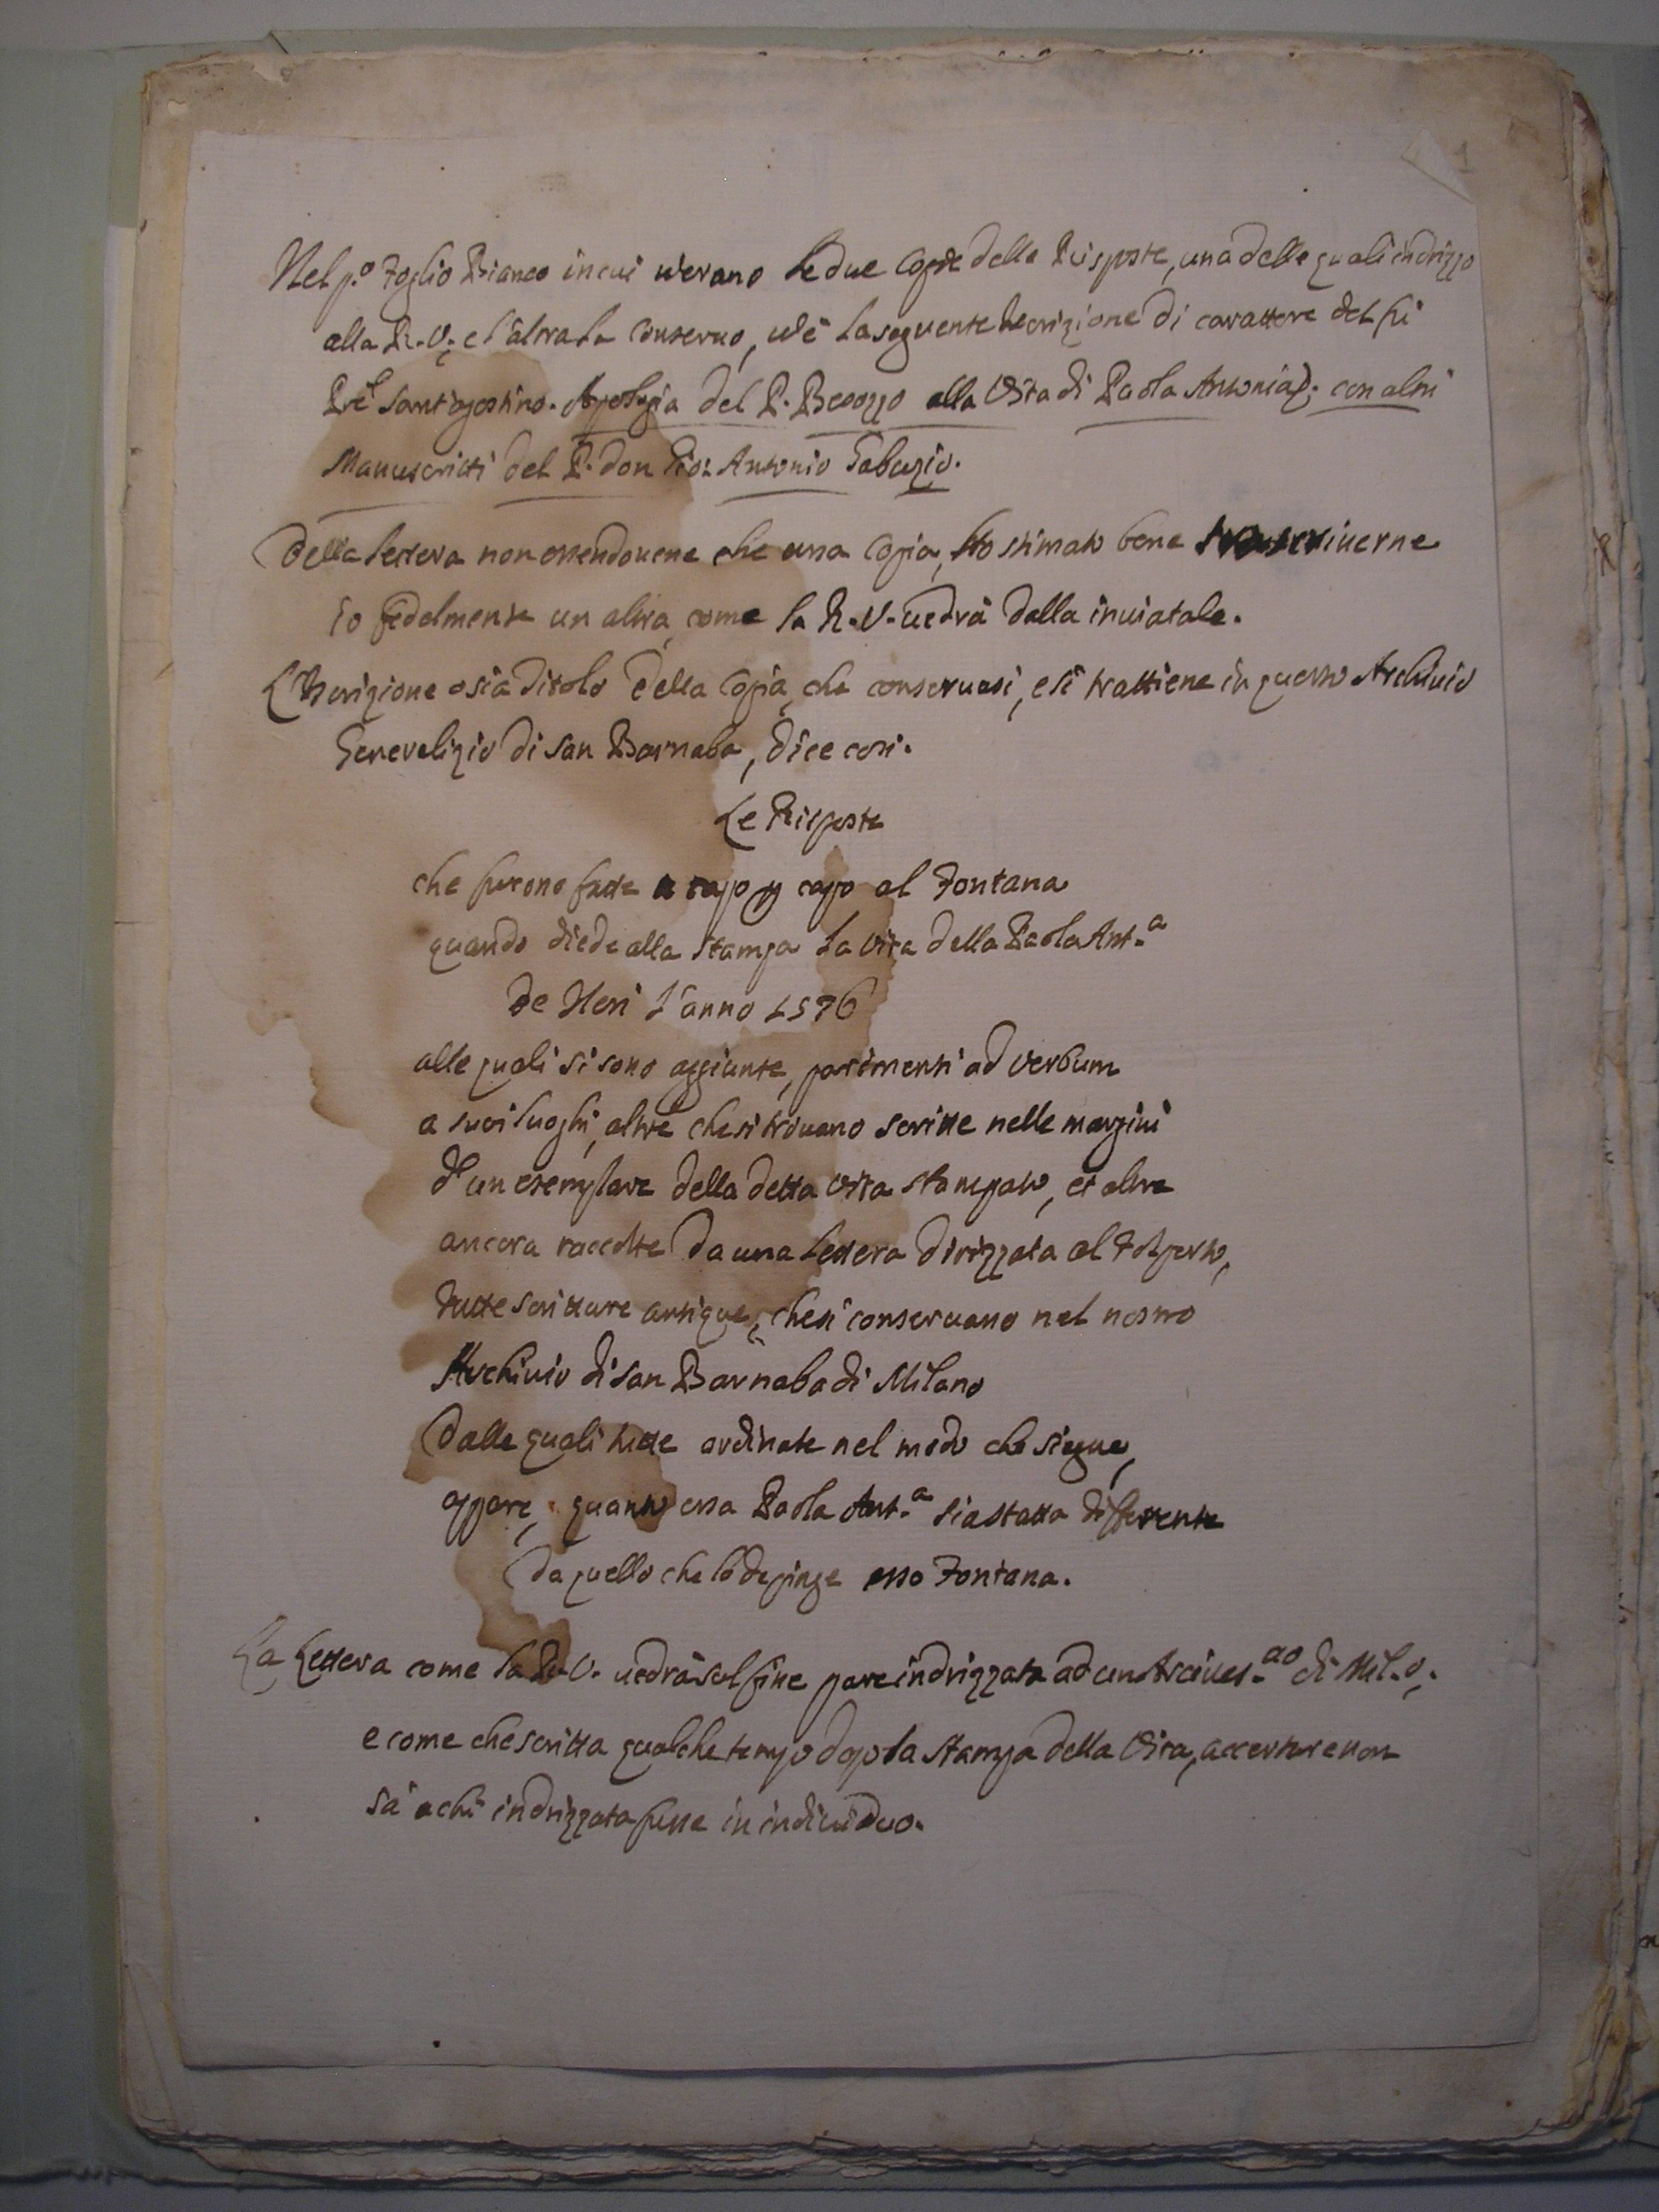 1
Nel p.o Foglio Bianco in cui v'erano le due Copie delle Risposte, una delle quali indrizzo
alla R. V. et l'altra la conseruo, u'è la seguente Iscrizione di carattere del fù
Pre Sant'Agostino. Apologia del P. Besozzo alla Vita di Paola Antonia); con altri
Manuscritti del P. don Gio: Antonio Gabuzio.
Della lettera non essendouene che una Copia, ho stimato bene trascriuerne
io fedelmente un altra, come la R. V. uedrà dalla inuiatale.
L'Iscrizione o sia Titolo della Copia, che conseruasi, e si trattiene in questo Archiuio
Generalizio di San Barnaba, dice così.
Le Risposte
che furono fatte a capo p capo al Fontana
quando diede alla stampa la vita della Paola Ant.a
de Neri l'anno 1576
alle quali si sono aggiunte, parimenti ad verbum
a suoi luoghi, altre che si trouano scritte nelle margini
d'un esemplare della detta vita stampato, et altre
ancora raccolte da una lettera dirizzata al
tutte scritture antique, che si conseruano nel nostro
Archiuio di San Barnaba di Milano
Dalle quali tutte ordinate nel modo che siegue,
appare, quanto essa Paola Ant.a sia stata differente
da quello che la depinge esso Fontana.
La Lettera come la R. V. uedrà sul fine pare indrizzata ad un Arciues.ao di Mil.o;
e come che scritta qualche tempo dopo la stampa della Vita, accertare non
sà a chi indrizzata fusse in indiuiduo.